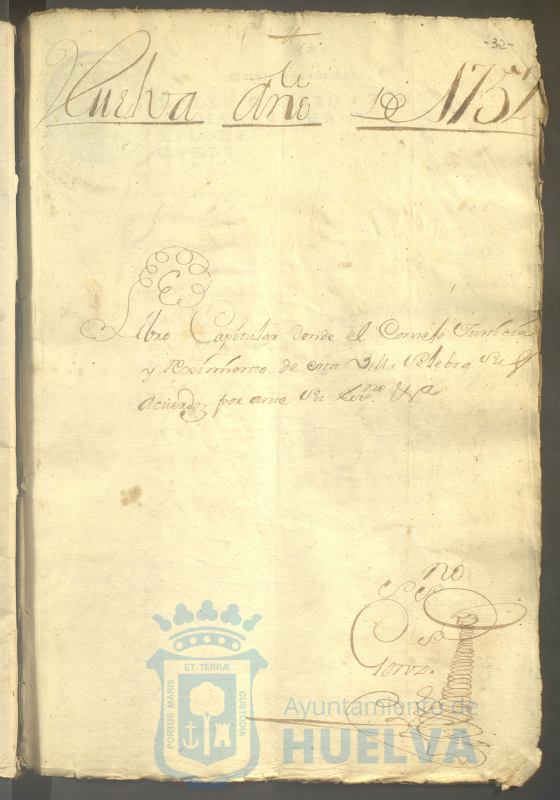 -32-
Huelva año de 1752
Libro Capitular donde el Consejo Justicia
y Reximiento de esta Villa Selebra sus
acuerdos por ante su Escno.
no
Gonz.
PORTUS MARIS
ET TERRÆ
CUSTODIA
Ayuntamiento de
HUELVA